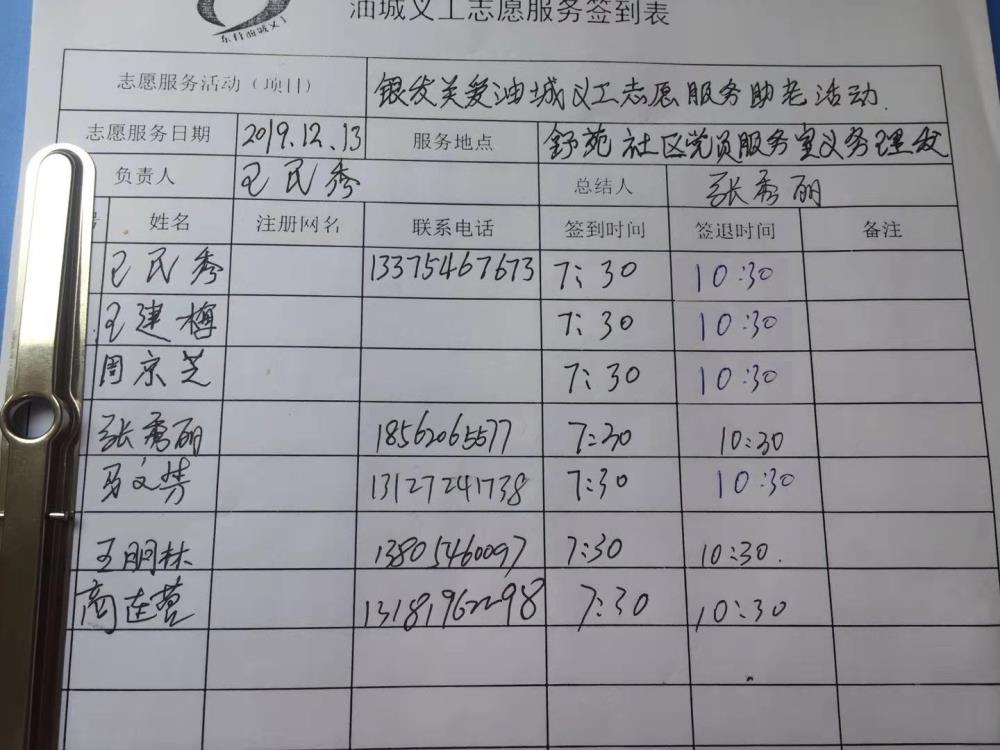 东营油城义工
油城义工志愿服务签到表
志愿服务活动（项目） 银发关爱油城义工志愿服务助老活动.
志愿服务日期 2019.12.13 服务地点 舒苑社区党员服务室义务理发
负责人 王民秀 总结人 张秀丽
号 姓名 注册网名 联系电话 签到时间 签退时间 备注
王民秀 13375467673 7:30 10:30
王建梅 7:30 10:30
周京芝 7:30 10:30
张秀丽 18562065577 7:30 10:30
马文芳 13127241738 7:30 10:30
王明林 13805460097 7:30 10:30.
商连营 13181962298 7:30 10:30